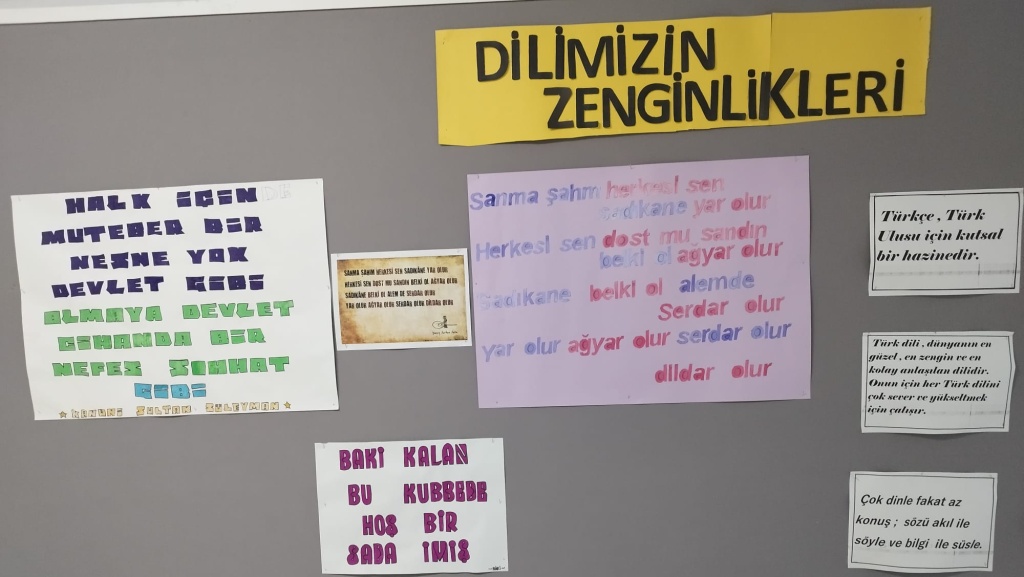 DİLİMİZİN
ZENGİNLİKLERİ
HALK İÇİNDE
MUTEBER BİR
NESNE YOK
DEVLET GİBİ
OLMAYA DEVLET
CİHANDA BİR
NEFES SIHHAT
GİBİ
KANUNİ SULTAN SÜLEYMAN
SANMA ŞAHIM HERKESİ SEN SADIKÂNE YAR OLUR
HERKESİ SEN DOST MU SANDIN BELKİ OL AĞYAR OLUR
SADIKÂNE BELKİ OL ALEM DE SERDAR OLUR
YAR OLUR AĞYAR OLUR SERDAR OLUR DİLDAR OLUR
Sanma şahım herkesi sen
sadıkane yar olur
Herkesi sen dost mu sandın
belki ol ağyar olur
Sadıkane belki ol alemde
Serdar olur
yar olur ağyar olur serdar olur
dildar olur
BAKİ KALAN
BU KUBBEDE
HOŞ BİR
SADA İMİŞ
Türkçe , Türk
Ulusu için kutsal
bir hazinedir.
Türk dili , dünyanın en
güzel , en zengin ve en
kolay anlaşılan dilidir.
Onun için her Türk dilini
çok sever ve yükseltmek
için çalışır.
Çok dinle fakat az
konuş ; sözü akıl ile
söyle ve bilgi ile süsle.